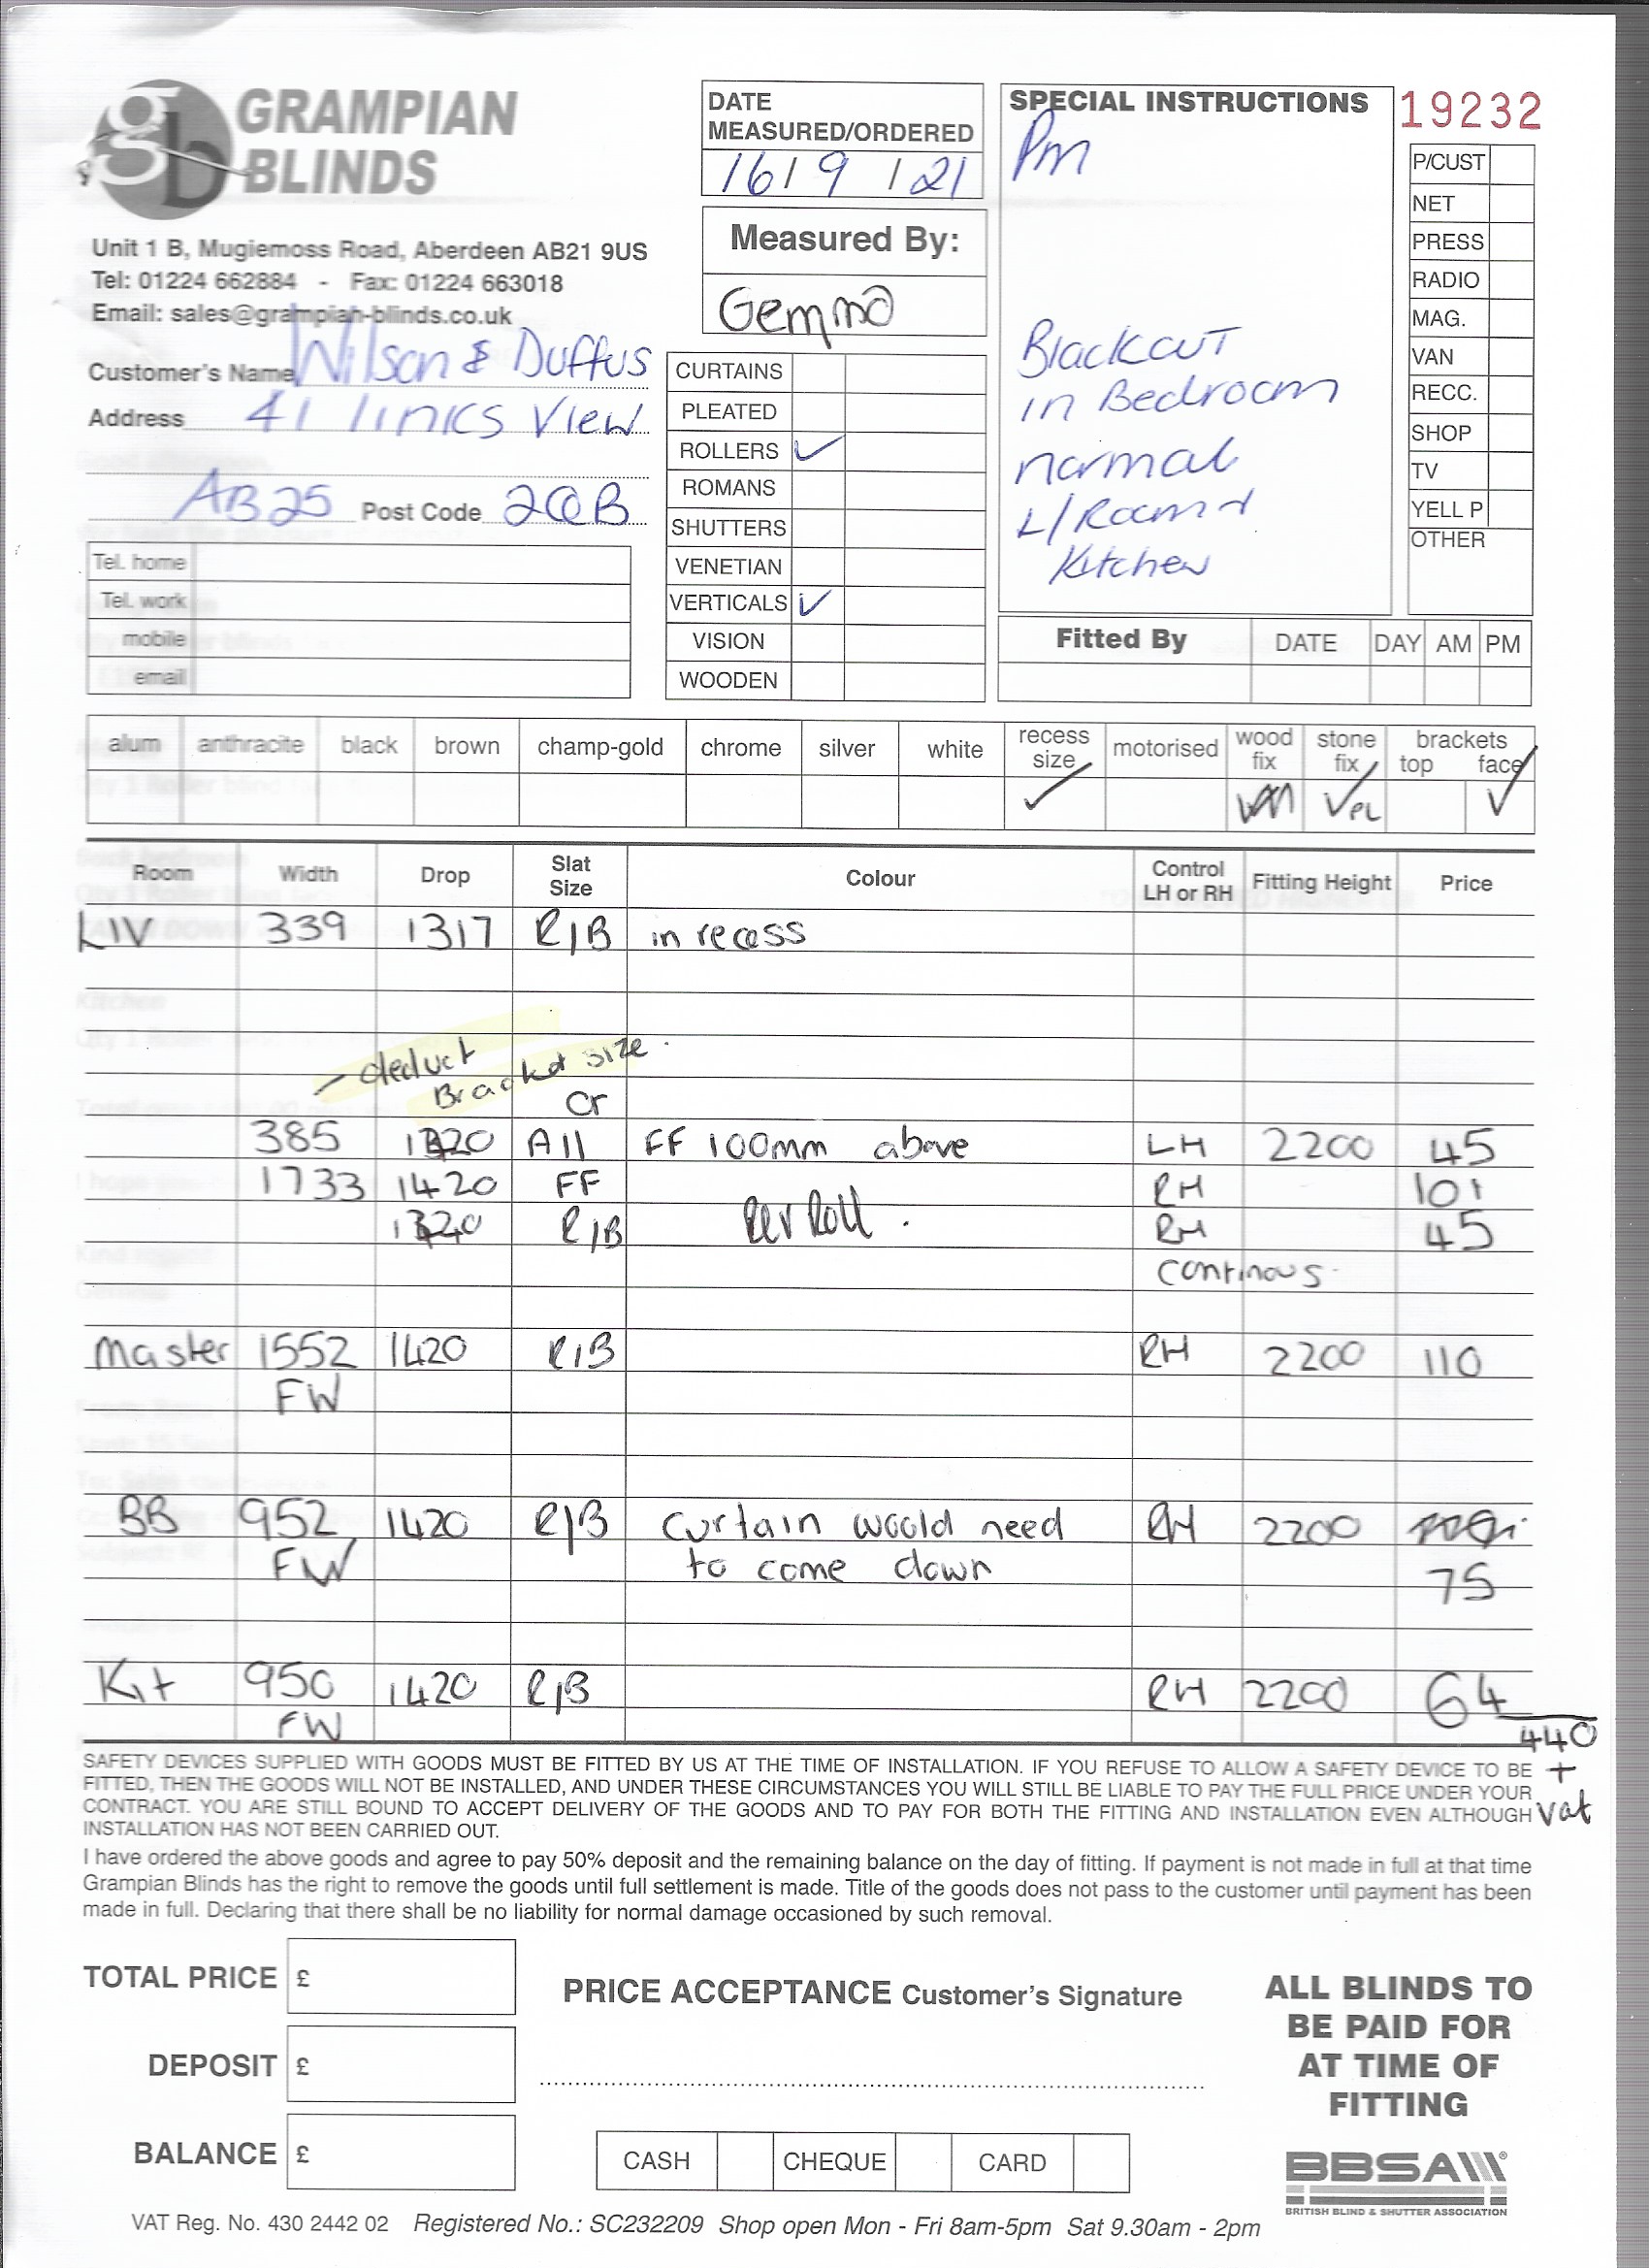 GRAMPIAN
BLINDS
Unit 1 B, Mugiemoss Road, Aberdeen AB21 9US
Tel: 01224 662884 - Fax: 01224 663018
Email: sales@grampian-blinds.co.uk
Customer's Name Wilson & Duffus
Address 41 links View
AB25 Post Code 2QB
Tel. home
Tel. work
mobile
email
DATE
MEASURED/ORDERED
16/9/21
Measured By:
Gemma
CURTAINS
PLEATED
ROLLERS ✓
ROMANS
SHUTTERS
VENETIAN
VERTICALS ✓
VISION
WOODEN
SPECIAL INSTRUCTIONS
Pm
Blackout
in Bedroom
normal
L/Room +
Kitchen
19232
P/CUST
NET
PRESS
RADIO
MAG.
VAN
RECC.
SHOP
TV
YELL P
OTHER
Fitted By DATE DAY AM PM
alum anthracite black brown champ-gold chrome silver white recess size motorised wood fix stone fix brackets top face
Room Width Drop Slat Size Colour Control LH or RH Fitting Height Price
LIV 339 1317 R/B in recess
- deduct
Bracket size.
or
385 1320 All FF 100mm above LH 2200 45
1733 1420 FF RH 101
1320 R/B Rev Roll. RH 45
continous
Master 1552 1420 R/B RH 2200 110
FW
BB 952 1420 R/B Curtain would need RH 2200
FW to come down 75
Kit 950 1420 R/B RH 2200 64
FW
440
+
vat
SAFETY DEVICES SUPPLIED WITH GOODS MUST BE FITTED BY US AT THE TIME OF INSTALLATION. IF YOU REFUSE TO ALLOW A SAFETY DEVICE TO BE
FITTED, THEN THE GOODS WILL NOT BE INSTALLED, AND UNDER THESE CIRCUMSTANCES YOU WILL STILL BE LIABLE TO PAY THE FULL PRICE UNDER YOUR
CONTRACT. YOU ARE STILL BOUND TO ACCEPT DELIVERY OF THE GOODS AND TO PAY FOR BOTH THE FITTING AND INSTALLATION EVEN ALTHOUGH
INSTALLATION HAS NOT BEEN CARRIED OUT.
I have ordered the above goods and agree to pay 50% deposit and the remaining balance on the day of fitting. If payment is not made in full at that time
Grampian Blinds has the right to remove the goods until full settlement is made. Title of the goods does not pass to the customer until payment has been
made in full. Declaring that there shall be no liability for normal damage occasioned by such removal.
TOTAL PRICE £
DEPOSIT £
BALANCE £
PRICE ACCEPTANCE Customer's Signature
CASH CHEQUE CARD
ALL BLINDS TO
BE PAID FOR
AT TIME OF
FITTING
BBSA
BRITISH BLIND & SHUTTER ASSOCIATION
VAT Reg. No. 430 2442 02 Registered No.: SC232209 Shop open Mon - Fri 8am-5pm Sat 9.30am - 2pm